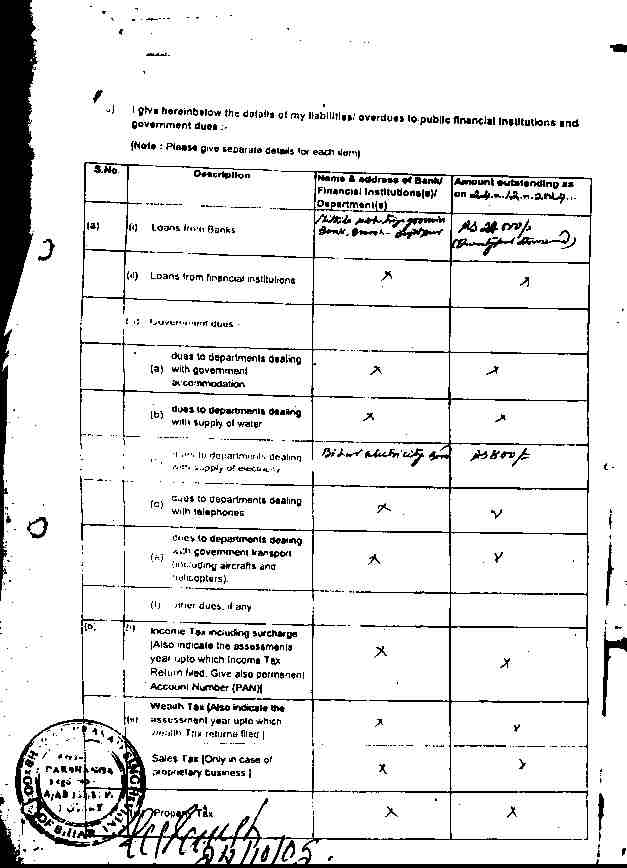 I give hereinbelow the details of my liabilities/ overdues to public financial institutions and
government dues :-
(Note : Please give separate details for each item)
S.No.
Description
Name & address of Bank/
Financial Institutions(s)/
Department(s)
Amount outstanding as
on
(a)
(i) Loans from Banks
Bank,
(ii) Loans from financial institutions
Government dues -
(a) dues to departments dealing
with government
accommodation
(b) dues to departments dealing
with supply of water
dues to departments dealing
with supply of electricity
Bihar electricity
Rs 800/-
dues to departments dealing
with telephones
(e) dues to departments dealing
with government transport
(including aircrafts and
helicopters).
(f) other dues, if any
(b)
(i) Income Tax including surcharge
[Also indicate the assessments
year upto which Income Tax
Return filed. Give also permanent
Account Number (PAN)]
Wealth Tax [Also indicate the
assessment year upto which
Wealth Tax returns filed ]
Sales Tax [Only in case of
proprietary business ]
Property Tax
OF BIHAR